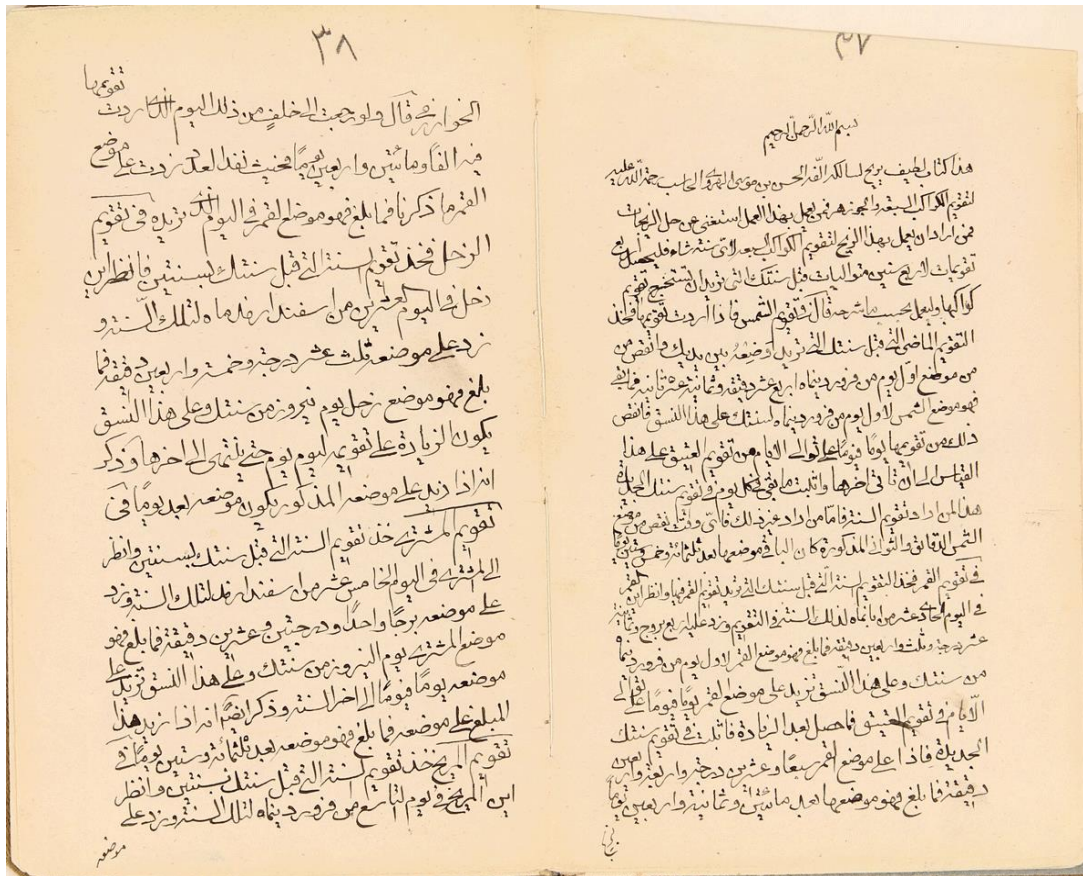 ٣٧
بسم الله الرحمن الرحيم
هذا كتاب لطيف بزيج لسالكه الفه الحسن بن موسى الهروي الحاسب رحمة الله عليه
لتقويم الكواكب السبعة والجوزهر فمن يعمل بهذا العمل استغنى عن حل الزيجات
فمن اراد ان يعمل بهذا الزيج لتقويم الكواكب السبعة لاى سنة شاء فليحصل اربع
تقويمات لاربع سنين متواليات قبل سنتك التى تريد ان تستخرج تقويم
كواكبها وليعمل بحسب ما شرحه قال فى تقويم الشمس فاذا اردت تقويمها فخذ
التقويم الماضى التى قبل سنتك التى تريد وضعه بين يديك وانقص من
من موضع اول يوم من فروردينماه اربع عشر دقيقة وثمانية عشره ثانية فما بقى
فهو موضع الشمس لاول يوم من فروردينماه لسنتك على هذا النسق فانقص
ذلك من تقويمها يومًا فيومًا على توالى الايام من تقويم العتيق على هذا
القياس الى ان تأتى اخرها واثبت ما بقى فى كل يوم فى تقويم سنتك الجديدة
هذا لمن اراد تقويم السنة فاما من اراد غير ذلك فاى وقت نقص من موضع
الشمس الدقائق والثوانى المذكورة كان الباقى موضعها بعد ثلثمائة وخمس وستين يومًا
فى تقويم القمر فخذ التقويم لسنة التى قبل سنتك التى تريد تقويم القمر فيها وانظر اين القمر
فى اليوم الحادى عشر من ابانماه لذلك السنة فى التقويم وزد عليه اربع بروج وثمانية
عشر درجة وثلث واربعين دقيقة فما بلغ فهو موضع القمر لاول يوم من فروردينماه
من سنتك وعلى هذا النسق تزيد على موضع القمر يومًا فيومًا على توالى
الايام فى تقويم العتيق فما حصل بعد الزيادة فاثبت فى تقويم سنتك
الجديدة فاذا على موضع القمر سبعًا وعشرين درجة واربعة واربعين
دقيقة فما بلغ فهو موضعها بعد مائتين وثمانية واربعين يومًا
٣٨
تقويمها
الخوارزمى قال ولو رجعت الى خلف من ذلك اليوم الذى اردت
فيه الفًا ومائتين واربعين يومًا فحيث تفد العدد زدت على موضع
القمر ما ذكرنا فما بلغ فهو موضع القمر فى اليوم الذى تريده فى تقويم
الزحل فخذ تقويم السنة التى قبل سنتك بسنتين فانظر اين
زحل فى اليوم العشرين من اسفندارمذماه لتلك السنة و
زد على موضعه ثلث عشر درجة وخمسة واربعين دقيقة فما
بلغ فهو موضع زحل يوم نيروز من سنتك وعلى هذا النسق
يكون الزيادة على تقويمه ليوم يوم حتى ينتهى الى اخرها وذكر
انه اذا زيد على موضعه المذكور يكون موضعه بعد يومًا فى
تقويم المشترى خذ تقويم السنة التى قبل سنتك بسنتين وانظر
الى المشترى فى اليوم الخامس عشر من اسفندارمذ لتلك السنة وزد
على موضعه برجًا واحدًا ودرجتين وعشرين دقيقة فما بلغ فهو
موضع المشترى يوم النيروز من سنتك وعلى هذا النسق تزيد على
موضعه يومًا فيومًا الى اخر السنة وذكر ايضًا انه اذا زيد هذا
المبلغ على موضعه فما بلغ فهو موضعه بعد ثلثمائة وستين يومًا فى
تقويم المريخ خذ تقويم السنة التى قبل سنتك بسنتين وانظر
اين المريخ فى يوم التاسع من فروردينماه لتلك السنة وزد على
موضعه